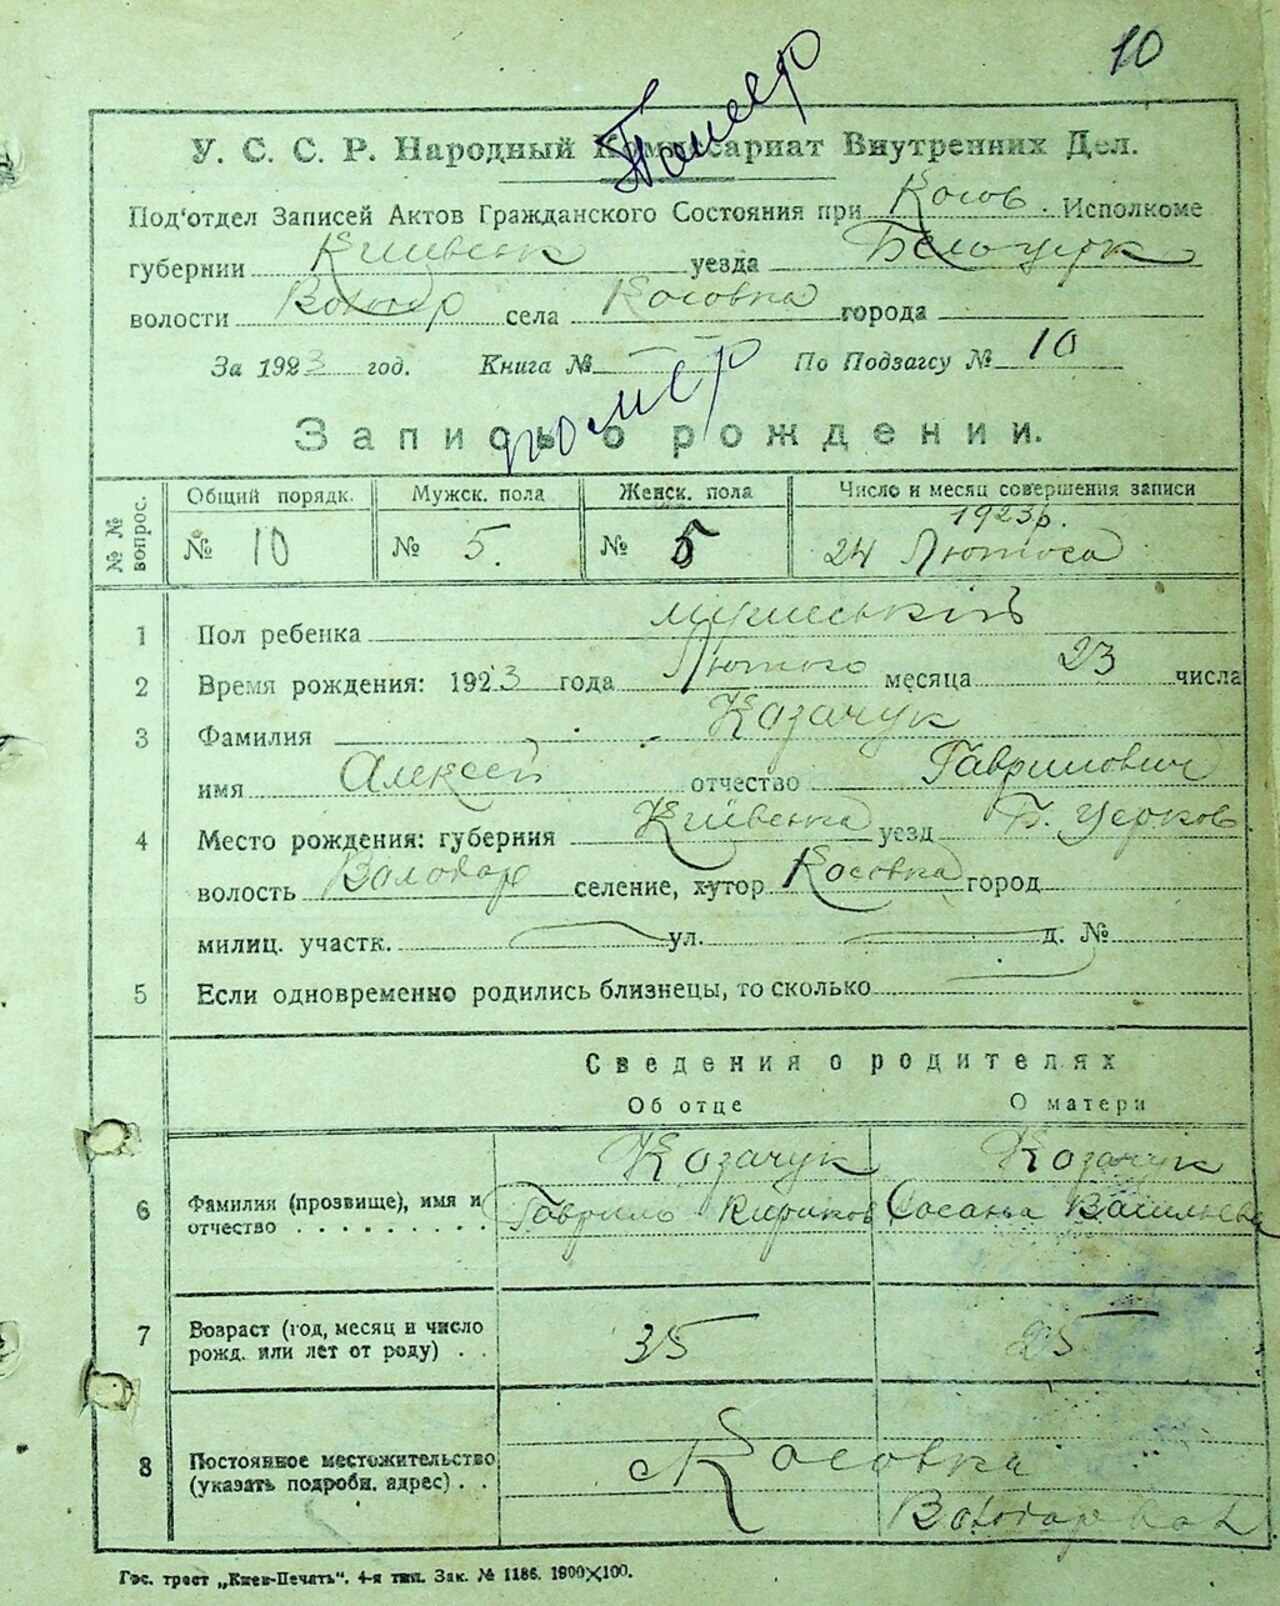 10
Помер
У. С. С. Р. Народный Комиссариат Внутренних Дел.
Под'отдел Записей Актов Гражданского Состояния при Косов. Исполкоме
губернии Київськ уезда Белоцерк
волости Володар села Косовка города
За 1923 год. Книга № — По Подзагсу № 10
помер
Запись о рождении.
№ № вопрос.
Общий порядк. Мужск. пола Женск. пола Число и месяц совершения записи
№ 10 № 5. № 5 1923р.
24 Лютого
1 Пол ребенка мужеській
2 Время рождения: 1923 года Лютого месяца 23 числа
3 Фамилия Козачук
имя Алексей отчество Гаврилович
4 Место рождения: губерния уезд Б. Церков
волость Володар селение, хутор Косовка город
милиц. участк. — ул. — д. №
5 Если одновременно родились близнецы, то сколько —
Сведения о родителях
Об отце О матери
Козачук Козачук
6 Фамилия (прозвище), имя и Гаврило Кириков
отчество . . . . . . . . .
7 Возраст (год, месяц и число
рожд. или лет от роду) . . 35 25
8 Постоянное местожительство с Косовка
(указать подробн. адрес) . . Володарск
Гос. трест „Киев-Печать". 4-я тип. Зак. № 1186. 1900×100.